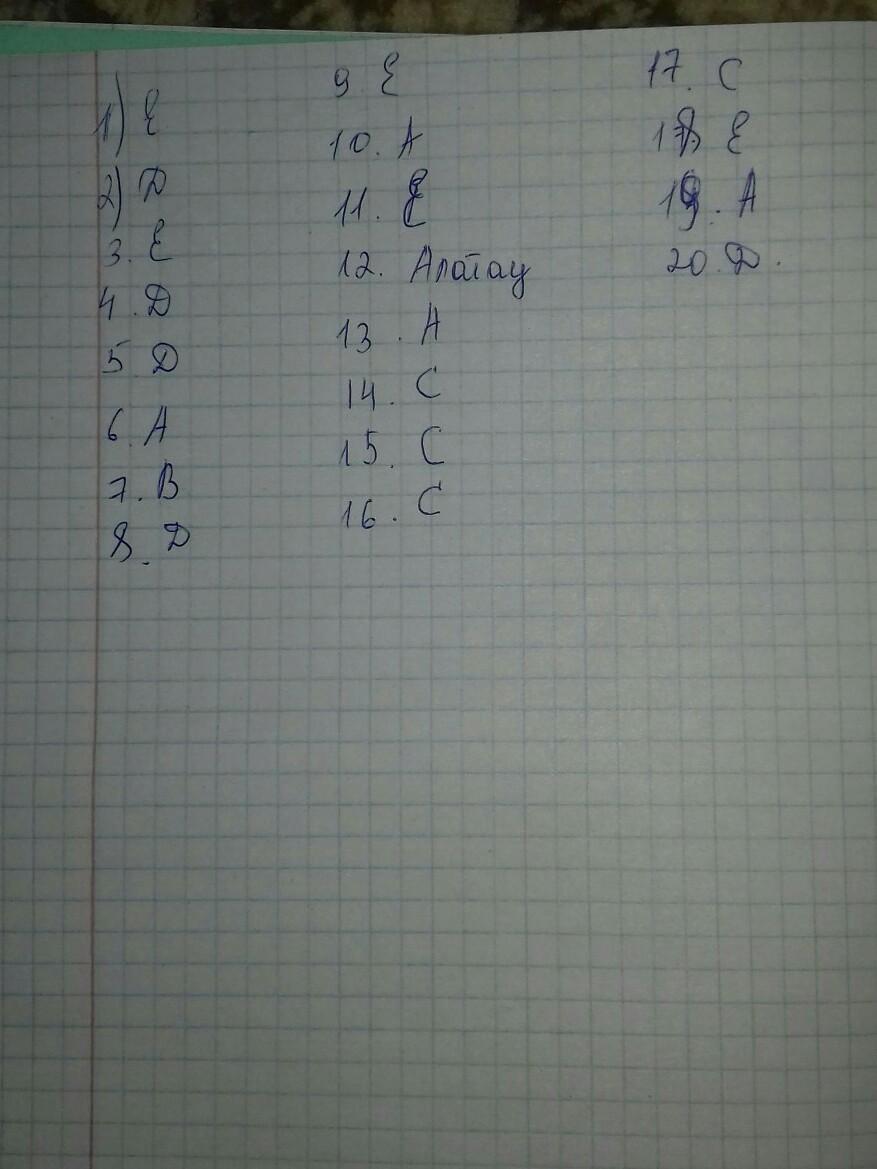 1) E
2) D
3. E
4. D
5 D
6. A
7. B
8. D
9 E
10. A
11. E
12. Алатау
13. A
14. C
15. C
16. C
17. C
18 E
19. A
20. D.